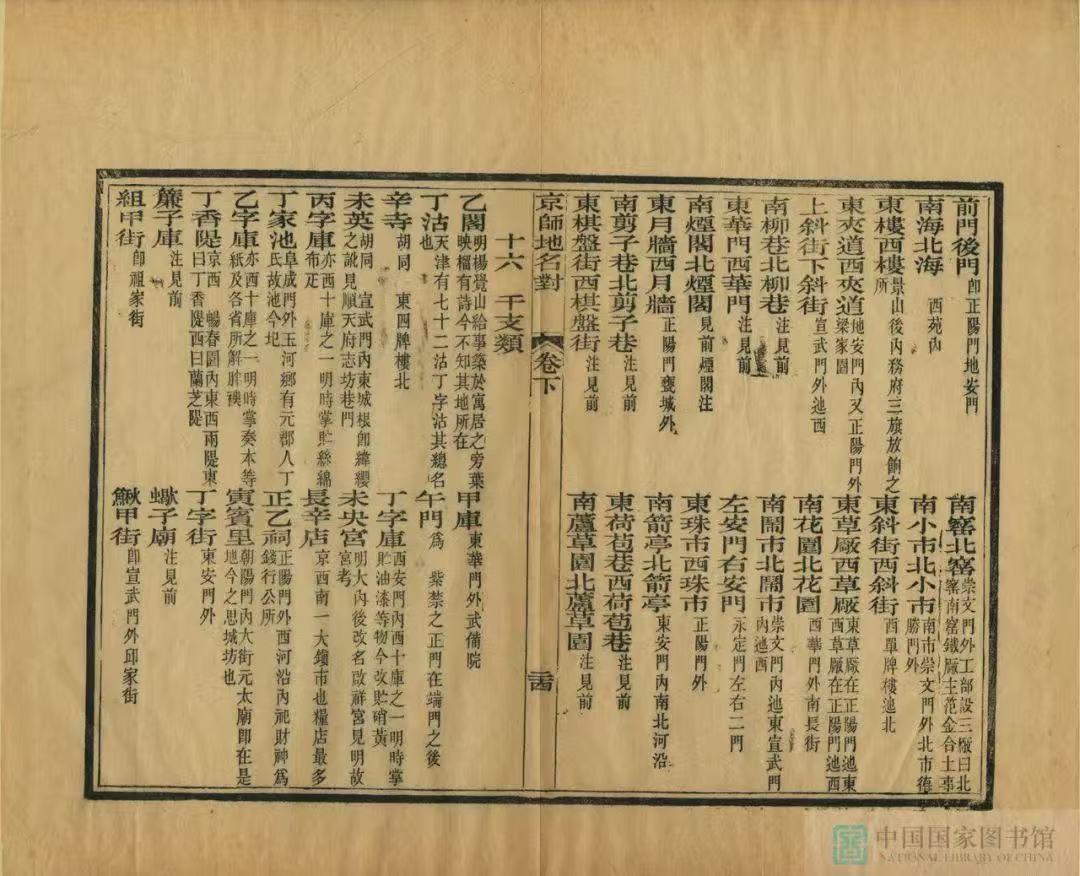 前門後門卽正陽門地安門 南窰北窰崇文門外工部設三廠曰北窰南窰鐵廠主范金合土事
南海北海西苑內 南小市北小市南市崇文門外北市德勝門外
東樓西樓景山後內務府三旗放餉之所 東斜街西斜街西單牌樓迆北
東夾道西夾道地安門內又正陽門外梁家園 東草厰西草厰東草厰在正陽門迆東西草厰在正陽門迆西
上斜街下斜街宣武門外迆西 南花園北花園西華門外南長街
南柳巷北柳巷注見前 南鬧市北鬧市崇文門內迆東宣武門內迆西
東華門西華門注見前 左安門右安門永定門左右二門
南煙閣北煙閣見前煙閣注 東珠市西珠市正陽門外
東月牆西月牆正陽門甕城外 南箭亭北箭亭東安門內南北河沿
南剪子巷北剪子巷注見前 東荷苞巷西荷苞巷注見前
東棋盤街西棋盤街注見前 南蘆草園北蘆草園注見前
京師地名對 卷下 二十四
十六 干支類
乙閣明楊覺山給事築於寓居之旁葉映榴有詩今不知其地所在 甲庫東華門外武備院
丁沽天津有七十二沽丁字沽其總名也 午門爲紫禁之正門在端門之後
辛寺胡同東四牌樓北 丁字庫西安門內西十庫之一明時掌貯油漆等物今改貯硝黃
未英胡同宣武門內東城根卽緯纓之訛見順天府志坊巷門 未央宮明大內後改名啟祥宮見明故宮考
丙字庫亦西十庫之一明時掌貯絲綿布疋 長辛店京西南一大鎭市也糧店最多
丁家池阜成門外玉河鄉有元郡人丁氏故池今圮 正乙祠正陽門外西河沿內祀財神爲錢行公所
乙字庫亦西十庫之一明時掌奏本等紙及各省所解胖襖 寅賓里朝陽門內大街元太廟卽在是地今之思城坊也
丁香隄京西暢春園內東西兩隄東曰丁香隄西曰蘭芝隄 丁字街東安門外
簾子庫注見前 蠍子廟注見前
組甲街卽祖家街 鰍甲街卽宣武門外邱家街
中国国家图书馆
NATIONAL LIBRARY OF CHINA